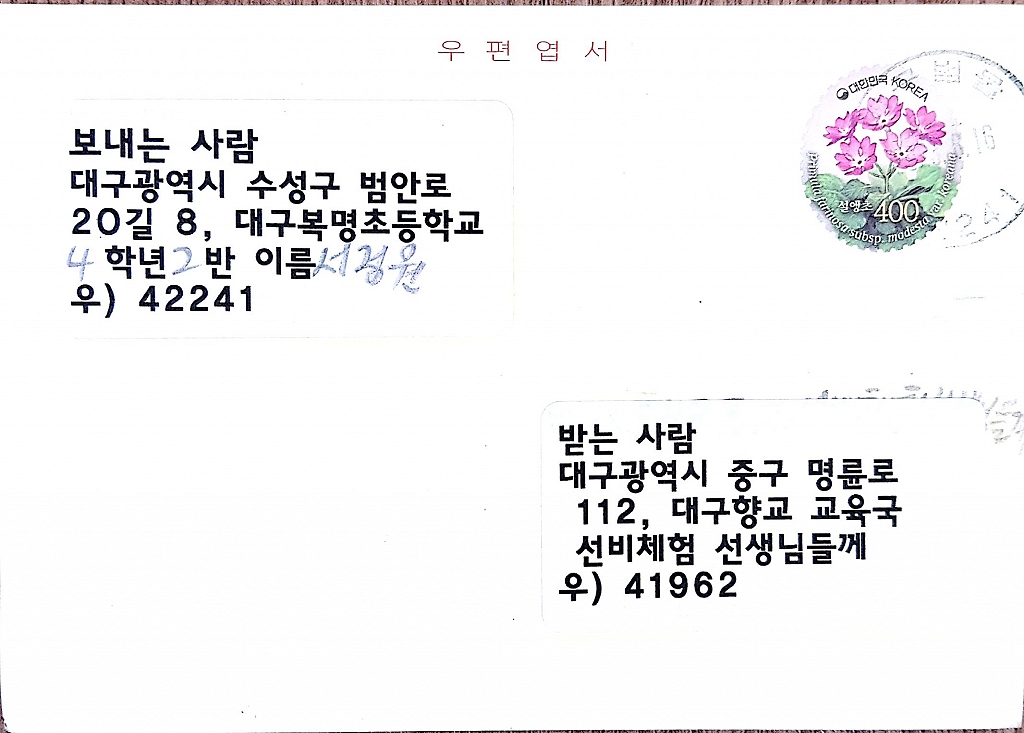 우편엽서
대한민국 KOREA
설앵초 400
보내는 사람
대구광역시 수성구 범안로
20길 8, 대구복명초등학교
4 학년 2 반 이름 서정원
우) 42241
받는 사람
대구광역시 중구 명륜로
112, 대구향교 교육국
선비체험 선생님들께
우) 41962